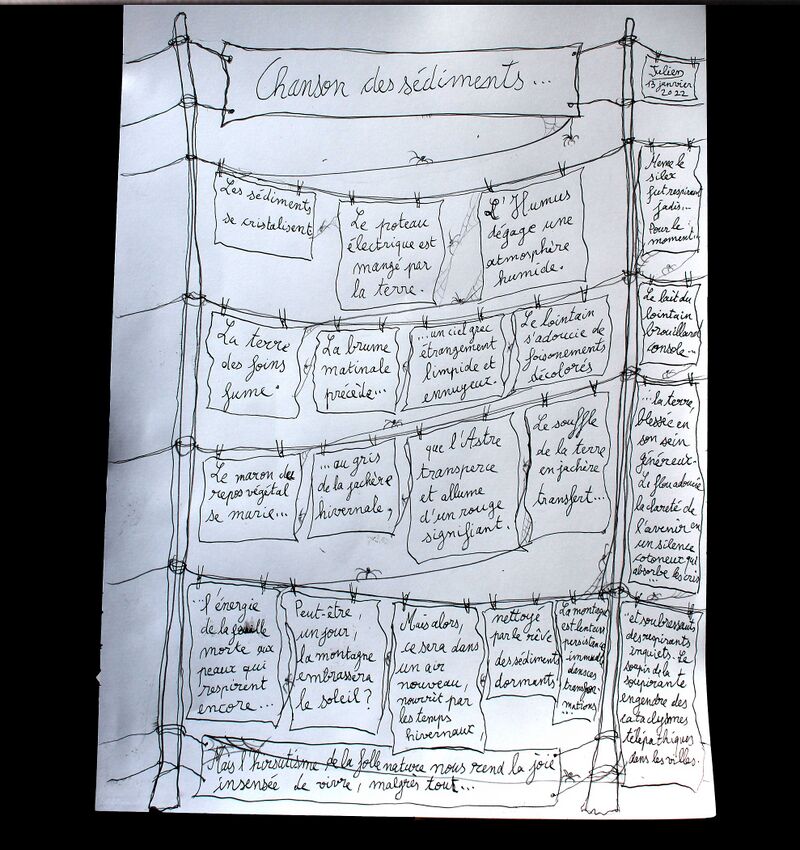 Chanson des sédiments...
Julien
13 janvier
2022
Les sédiments
se cristalisent
Le poteau
électrique est
mangé par
la terre.
L'Humus
dégage une
atmosphère
humide.
Même le
silex
fut respirant
jadis...
Pour le
moment...
La terre
des foins
fume.
La brume
matinale
précède...
...un ciel grec
étrangement
limpide et
ennuyeux.
Le lointain
s'adoucie de
foisonements
décolorés
Le lait du
lointain
brouillard
console...
Le maron du
repos végétal
se marie...
...au gris
de la jachère
hivernale,
que l'Astre
transperce
et allume
d'un rouge
signifiant.
Le souffle
de la terre
en jachère
transfert...
...la terre,
blessée en
son sein
généreux.
Le flou adoucie
la clareté de
l'avenir en
un silence
cotoneux qui
absorbe les cris
...
...l'énergie
de la feuille
morte aux
peaux qui
respirent
encore...
Peut-être,
un jour,
la montagne
embrassera
le soleil?
Mais alors,
ce sera dans
un air
nouveau,
nourrit par
les temps
hivernaux,
nettoyé
par le rêve
des sédiments
dormants.
La montagne
est lenteur
persistance
immuable
dans ces
transfor-
mations
...
...et soubressauts
des respirants
inquiets. Le
soupir de la
soupirante
engendre des
cataclysmes
télépathiques
dans les villes.
Mais l'hirsutisme de la folle nature nous rend la joie
insensée de vivre, malgrès tout...